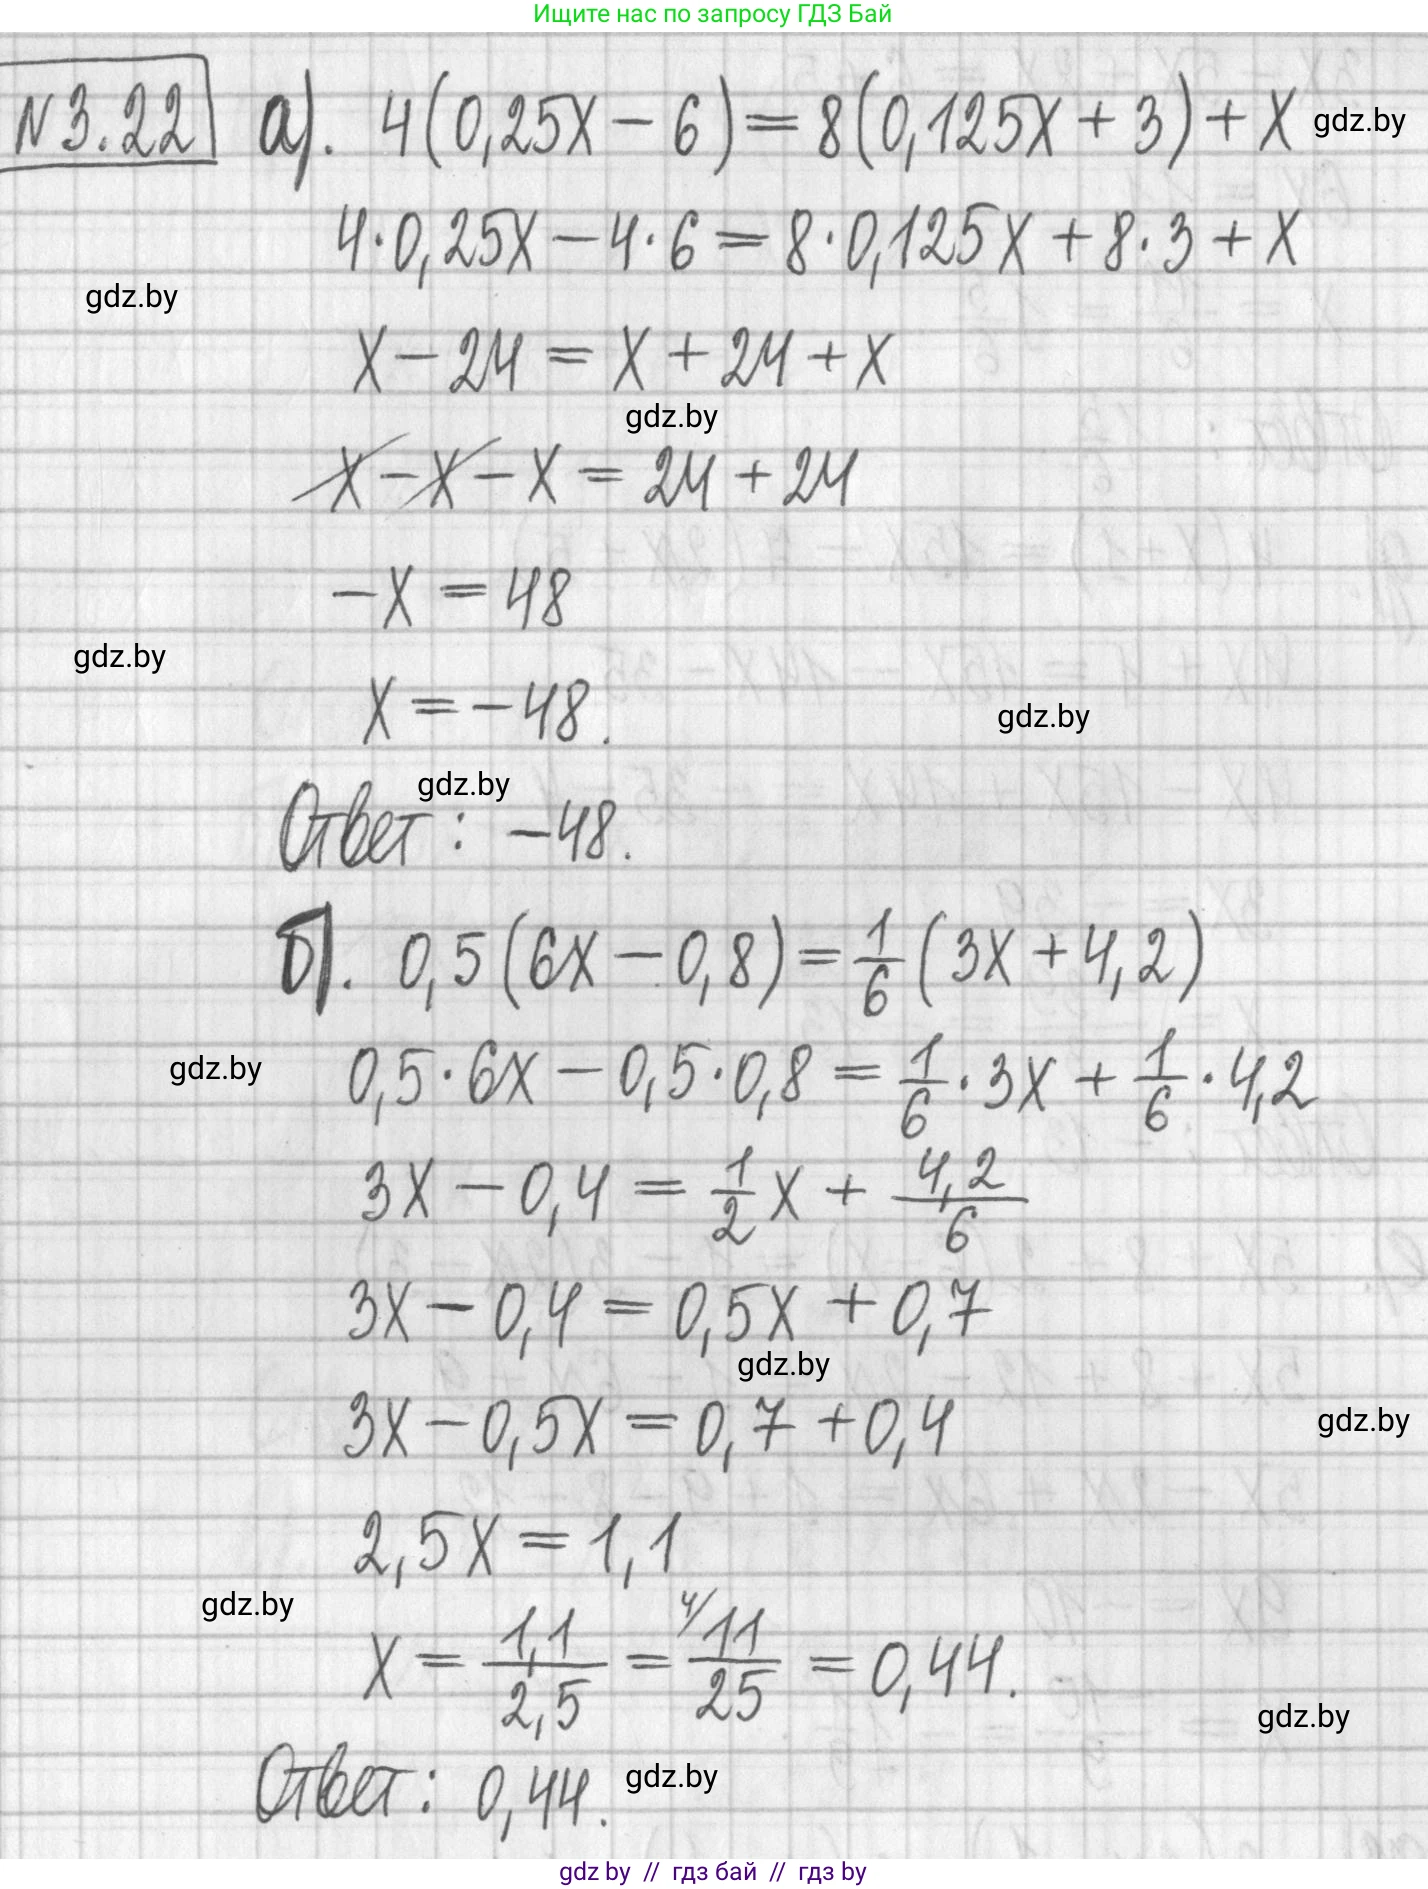 Ищите нас по запросу ГДЗ Бай
N 3.22 а). 4(0,25x − 6) = 8(0,125x + 3) + x gdz.by
4·0,25x − 4·6 = 8·0,125x + 8·3 + x
gdz.by
x − 24 = x + 24 + x
gdz.by
x − x − x = 24 + 24
−x = 48
gdz.by
x = −48.
gdz.by
gdz.by
Ответ: −48.
б). 0,5(6x − 0,8) = 1/6 (3x + 4,2)
gdz.by 0,5·6x − 0,5·0,8 = 1/6 · 3x + 1/6 · 4,2
3x − 0,4 = 1/2 x + 4,2/6
3x − 0,4 = 0,5x + 0,7
gdz.by
3x − 0,5x = 0,7 + 0,4
gdz.by
2,5x = 1,1
gdz.by
x = 1,1/2,5 = 4/ 11/25 = 0,44.
gdz.by
Ответ: 0,44. gdz.by
gdz by // гдз бай // гдз by